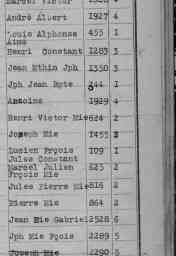 Marcel Victor
André Albert 1927 4
Louis Alphonse 455 1
Aimé
Henri Constant 1283 3
Jean Mthin Jph 1350 3
Jph Jean Bpte 344 1
Antoine 1929 4
Henri Victor Mie 624 2
Joseph Mie 1455 3
Lucien Frçois 109 1
Jules Constant
Marcel Julien 625 2
Frçois Mie
Jules Pierre Mie 816 2
Pierre Mie 864 2
Jean Mie Gabriel 2528 6
Jph Mie Fçois 2289 5
Joseph Mie 2290 5